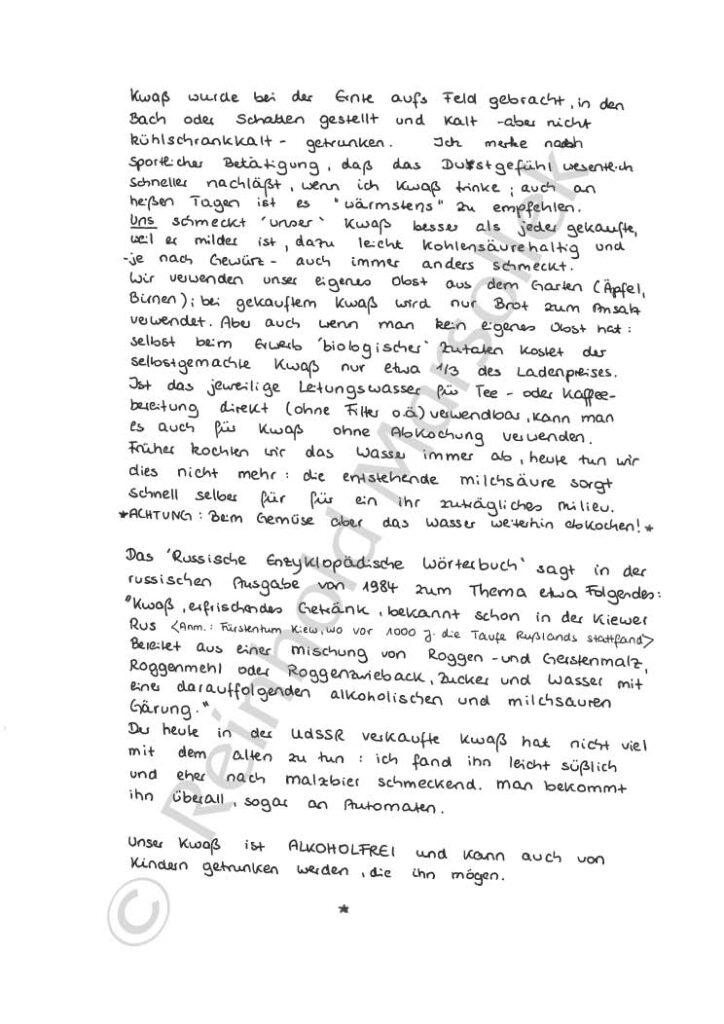 Kwaß wurde bei der Ernte aufs Feld gebracht, in den
Bach oder Schatten gestellt und kalt -aber nicht
kühlschrankkalt- getrunken. Ich merke nach
sportlicher Betätigung, daß das Durstgefühl wesentlich
schneller nachläßt, wenn ich Kwaß trinke; auch an
heißen Tagen ist es "wärmstens" zu empfehlen.
Uns schmeckt 'unser' Kwaß besser als jeder gekaufte,
weil er milder ist, dazu leicht kohlensäurehaltig und
-je nach Gewürz- auch immer anders schmeckt.
Wir verwenden unser eigenes Obst aus dem Garten (Äpfel,
Birnen); bei gekauftem Kwaß wird nur Brot zum Ansatz
verwendet. Aber auch wenn man kein eigenes Obst hat:
selbst beim Erwerb 'biologischer' Zutaten kostet der
selbstgemachte Kwaß nur etwa 1/3 des Ladenpreises.
Ist das jeweilige Leitungswasser für Tee- oder Kaffee-
bereitung direkt (ohne Filter o.ä) verwendbar, kann man
es auch für Kwaß ohne Abkochung verwenden.
Früher kochten wir das Wasser immer ab, heute tun wir
dies nicht mehr: die entstehende Milchsäure sorgt
schnell selber für für ein ihr zuträgliches Milieu.
*ACHTUNG: Beim Gemüse aber das Wasser weiterhin abkochen!*
Das 'Russische Enzyklopädische Wörterbuch' sagt in der
russischen Ausgabe von 1984 zum Thema etwa Folgendes:
"Kwaß, erfrischendes Getränk, bekannt schon in der Kiewer
Rus <Anm.: Fürstentum Kiew, wo vor 1000 J. die Taufe Rußlands stattfand>
Bereitet aus einer Mischung von Roggen-und Gerstenmalz,
Roggenmehl oder Roggenzwieback, Zucker und Wasser mit
einer darauffolgenden alkoholischen und milchsauren
Gärung."
Der heute in der UdSSR verkaufte Kwaß hat nicht viel
mit dem alten zu tun: ich fand ihn leicht süßlich
und eher nach Malzbier schmeckend. Man bekommt
ihn überall, sogar an Automaten.
Unser Kwaß ist ALKOHOLFREI und kann auch von
Kindern getrunken werden, die ihn mögen.
*
© Reinhold Marsollek